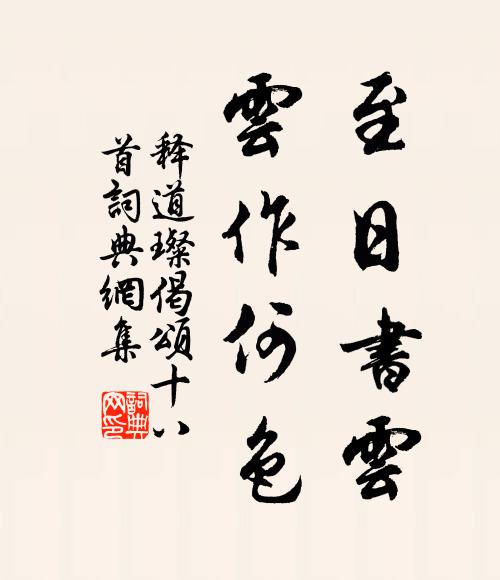 至日書雲
雲作何色
释道璨偈頌十八
首詞典網集
詞典
网印